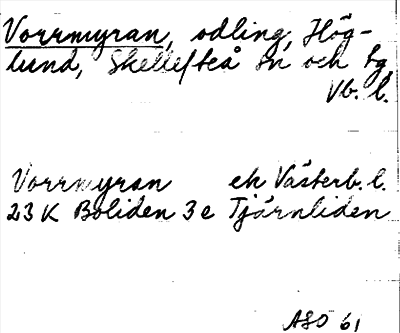 Vorrmyran, odling, Hög-
lund, Skellefteå sn och tg
Vb. l.
Vorrmyran ek Västerb. l.
23 K Boliden 3 e Tjärnliden
ASO 61